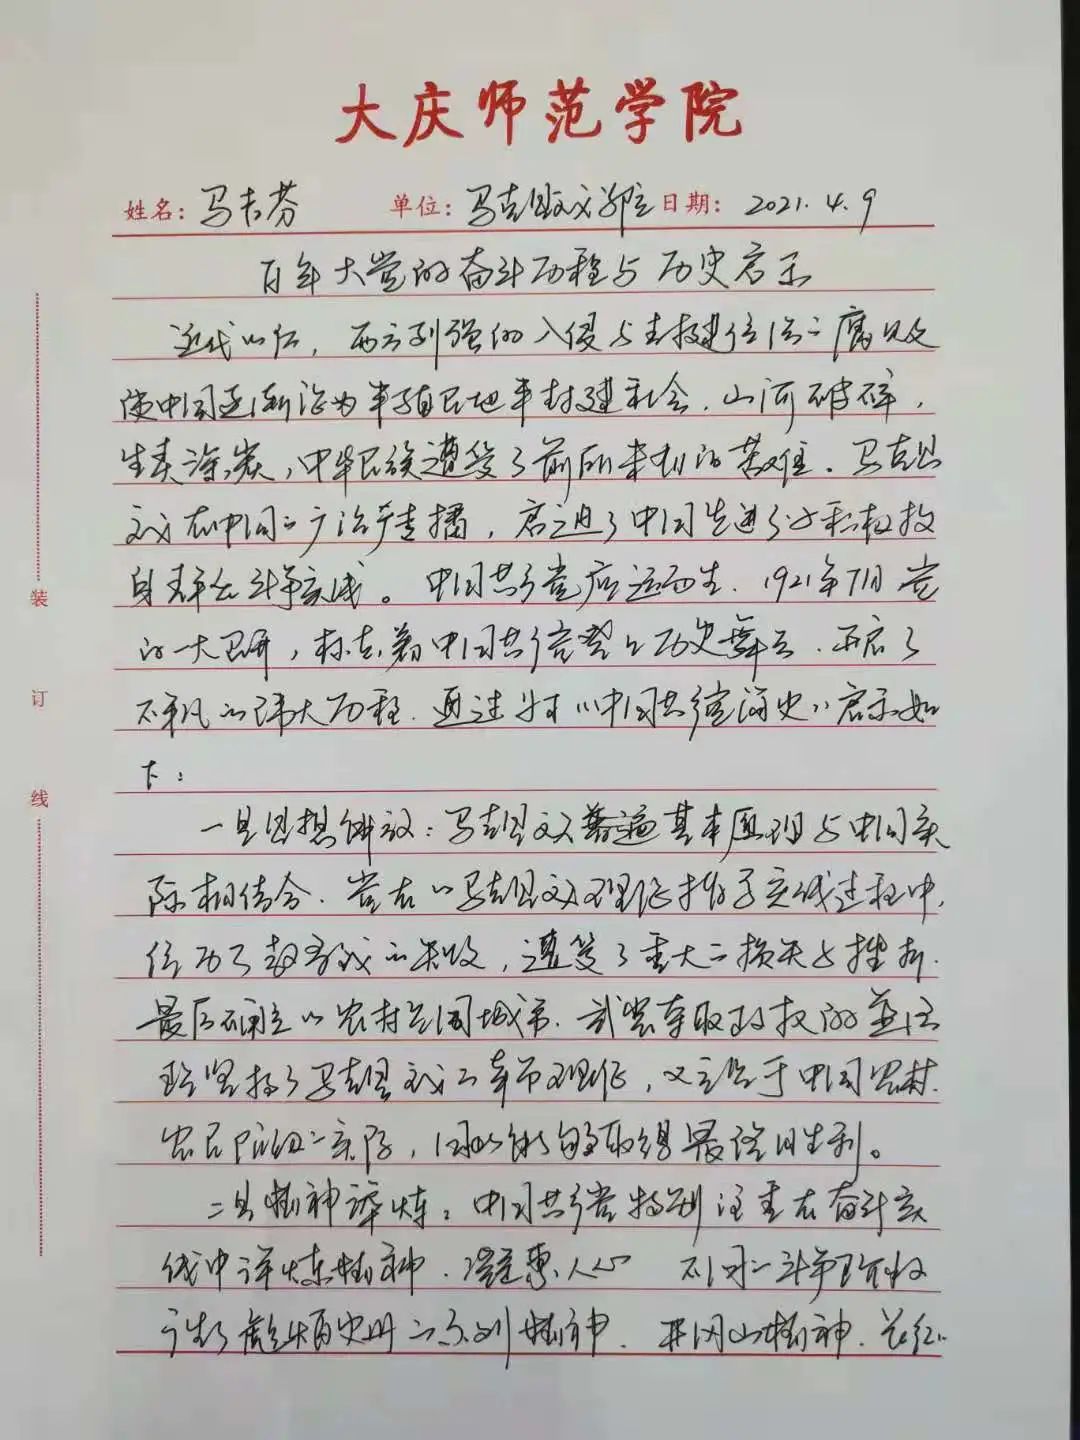 大庆师范学院
姓名：马吉芬 单位：马克思主义学院 日期：2021.4.9
百年大党的奋斗历程与历史启示
近代以后，西方列强的入侵与封建统治的腐败
使中国逐渐沦为半殖民地半封建社会，山河破碎，
生灵涂炭，中华民族遭受了前所未有的苦难。马克思
主义在中国的广泛传播，启迪了中国先进分子积极投
身革命斗争实践。中国共产党应运而生，1921年7月党
的一大召开，标志着中国共产党登上历史舞台，开启了
不平凡的伟大历程。通过学习《中国共产党简史》启示如
下：
一是思想解放：马克思主义普遍基本原理与中国实
际相结合。党在以马克思主义理论指导实践过程中，
经历了的失败，遭受了重大的损失与挫折，
最后确立以农村包围城市、武装夺取政权的革命
坚持了马克思主义的基本理论，又立足于中国农村、
农民的实际，因此能够取得最终的胜利。
二是精神淬炼：中国共产党特别注重在奋斗实
践中淬炼精神，人心 不同的斗争阶段
产生了彪炳史册的系列精神，井冈山精神、长征
装 订 线